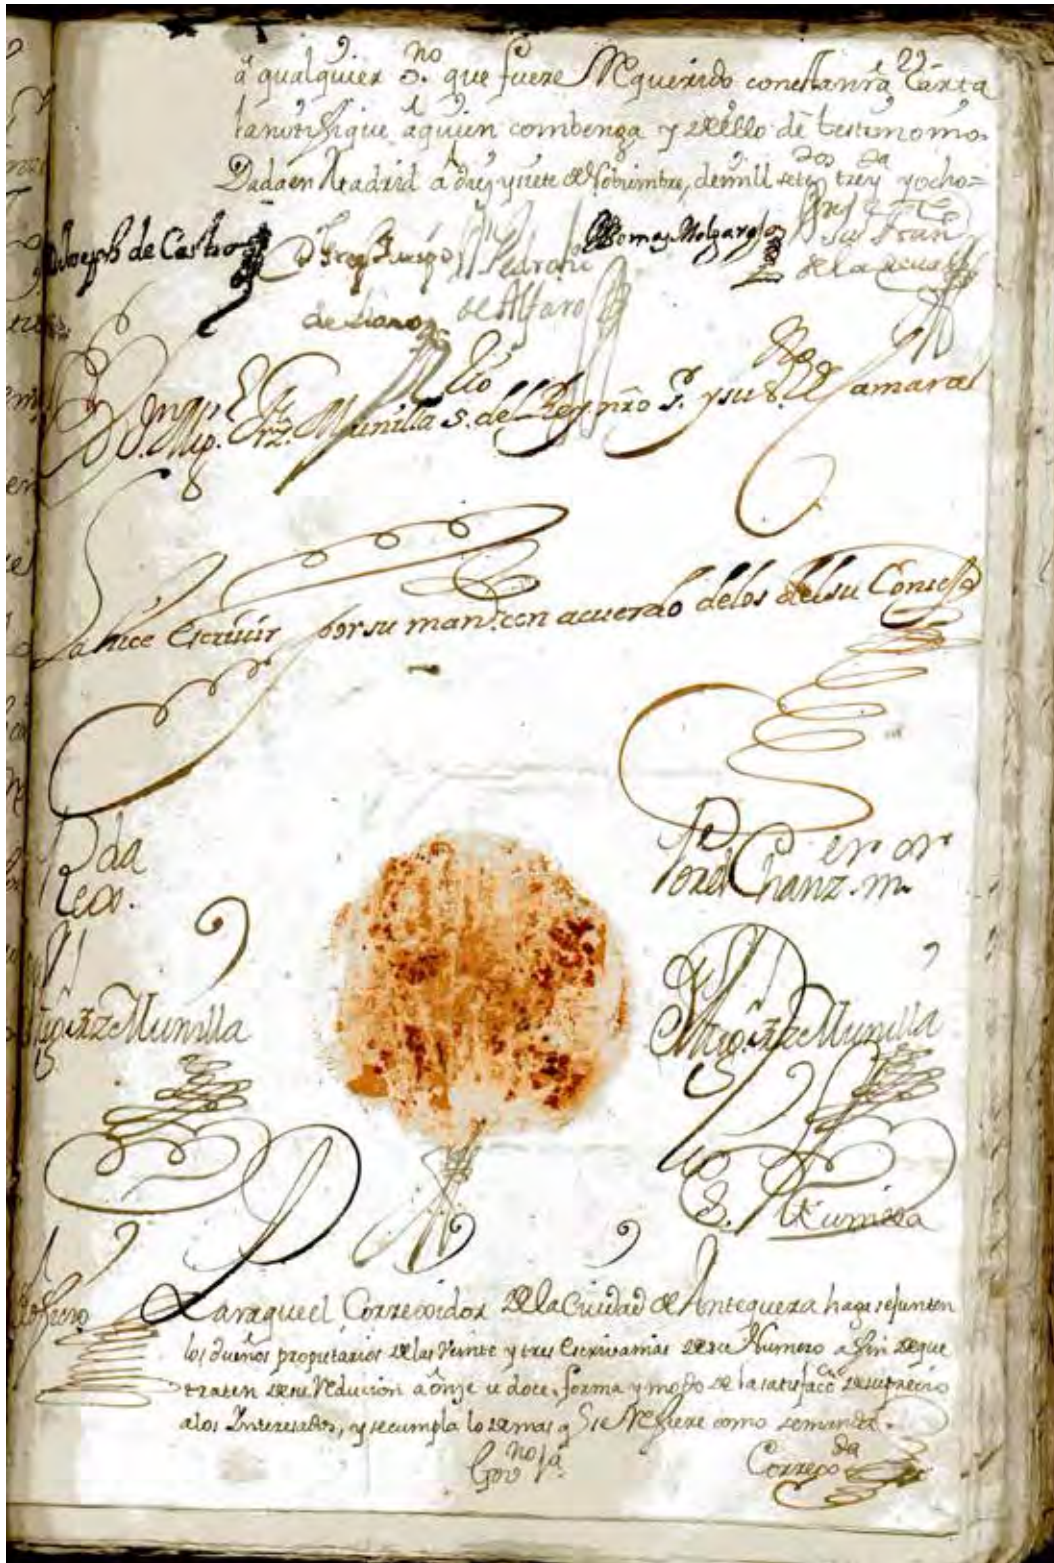 22
á qualquier S.no que fuere Requerido con esta nra Carta
la notifique á quien combenga y de ello dé testimonio.
Dada en Madrid á diez y siete de Nobiembre, de mill setezdos treyta y ocho =
Joseph de Castro
Thomas Melgarejo
de Alfaro
Munilla S. del Rey nro S. y su S. de Camara
La hice escriuir por su man.do con acuerdo de los de su Consejo
R.da
Por el Chanz.er m.or
Mig. Frz Munilla
Mig. Frz Munilla
S. Munilla
Para que el Correxidor de la Ciudad de Antequera haga se junten
los dueños propietarios de las Veinte y tres escrivanias de su Numero a fin de que
traten de su Reducion á onze u doce, forma y modo de la satisfacc.on de su precio
a los Interesados, y se cumpla lo demas q Se Refiere como se manda.
Gov.no
Correxo da